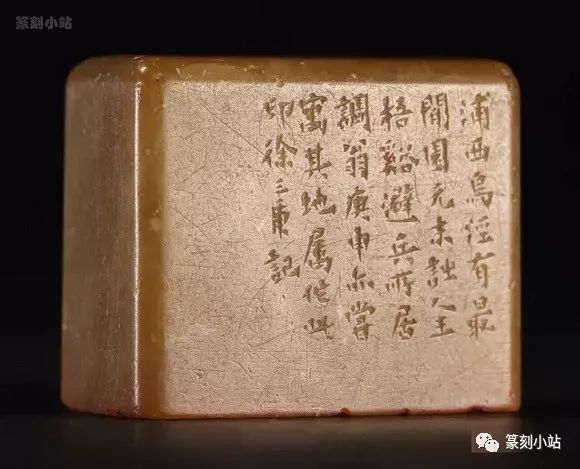 篆刻小站
浦西烏涇有最
閒園元末詩人王
梧谿避兵所居
調翁庚申亦嘗
寓其地属作此
印徐三庚記
篆刻小站